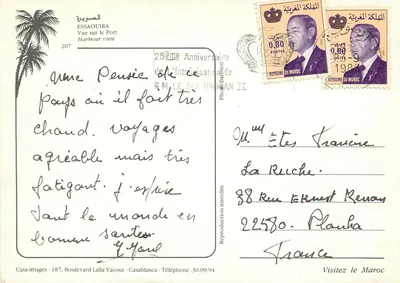 الصويرة
ESSAOUIRA
Vue sur le Port
Harbour view
207
25ème Anniversaire
de l'Intronisation de
S.M. LE ROI HASSAN II
المملكة المغربية
0,80
POSTES
ROYAUME DU MAROC
المملكة المغربية
0,80
ROYAUME DU MAROC
une Pensée de ce
pays où il fait très
chaud. voyages
agréable mais très
fatigant. j'espère
tout le monde en
bonne santé
Photo
Reproduction interdite
Mme
La Ruche.
38 Rue Ernest Renan
22580. Plouha
France
Casa-images - 187, Boulevard Lalla Yacout - Casablanca - Téléphone .30.09.94
Visitez le Maroc